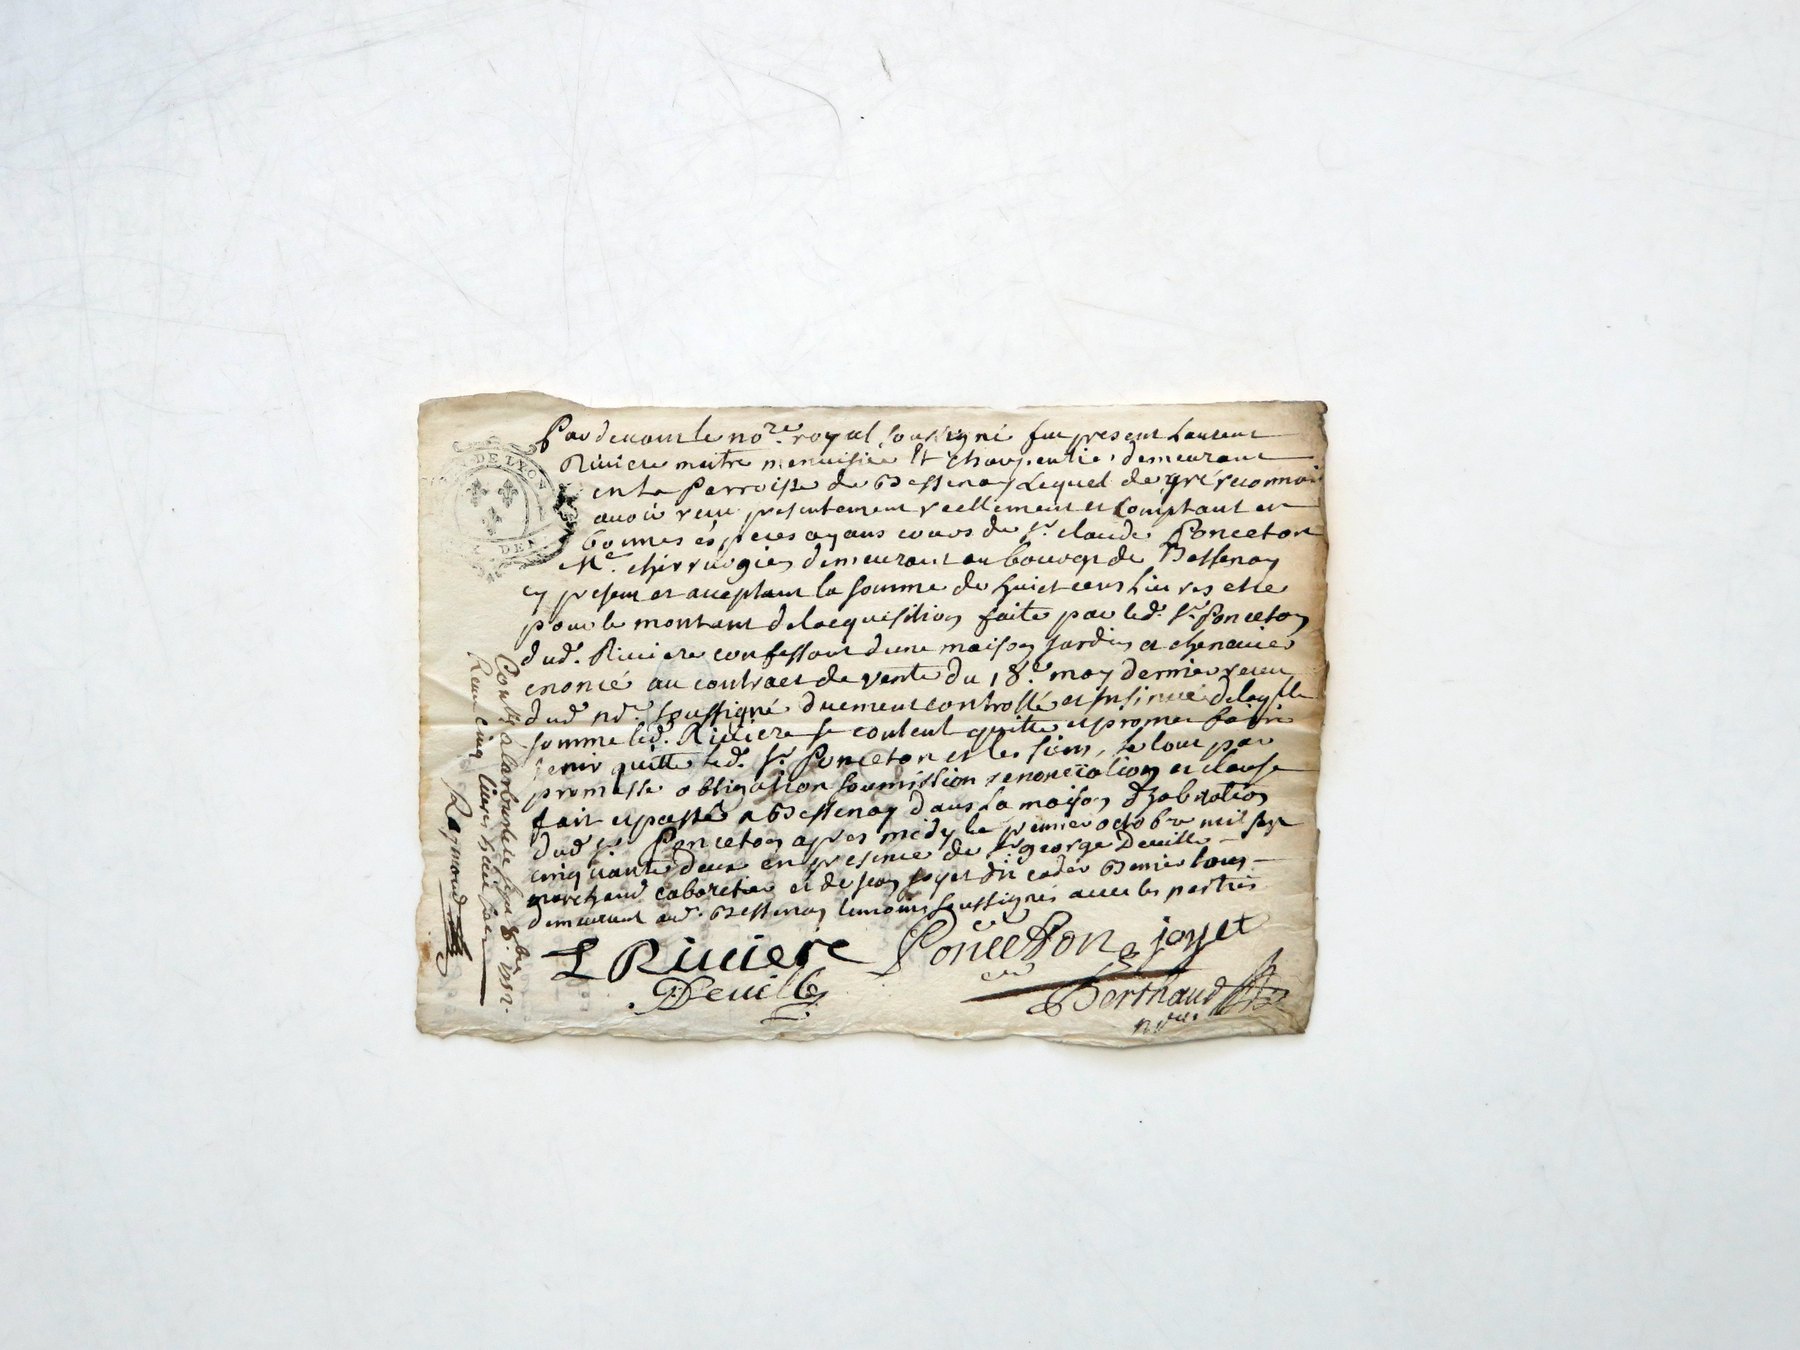 DE LYON
DEN.
Par devant le no.re royal soussigné fut present Laurent
Riviere maitre menuisier et charpentier demeurant
en la Parroisse de Bessenay Lequel de gré reconnoit
avoir recu presentement reellement et comptant en
bonnes especes ayans cours de Sr. claude Ponceton
Me. chirurgien demeurant au bourg de Bessenay
cy present et acceptant la somme de huict cens livres et ce
pour le montant de lacquisition faite par led. Sr. Ponceton
dud. Riviere confessant dune maison jardin et chenavier
enoncé au contract de vente du 18.e may dernier receu
dud. no.re soussigné duement controllé et insinué de laqlle
somme led. Riviere se contente quitte et promet faire
tenir quitte led. Sr. Ponceton et les siens, le tout par
promesse obligation soumission renonciation et clause
fait et passé a Bessenay dans la maison dhabitation
dud. Sr. Ponceton apres midy le premier octobre mil sept
cinquante deux en presence de Sr. george Deville
marchand cabaretier et de jean joyet dit cader Benier tous
demeurant aud. Bessenay temoins soussignés avec les parties
L Riviere Ponceton joyet
Deville
Berthaud
no.re
Contlé a Larbresle le 8.bre 1752.
Receu cinq livres
Raymond